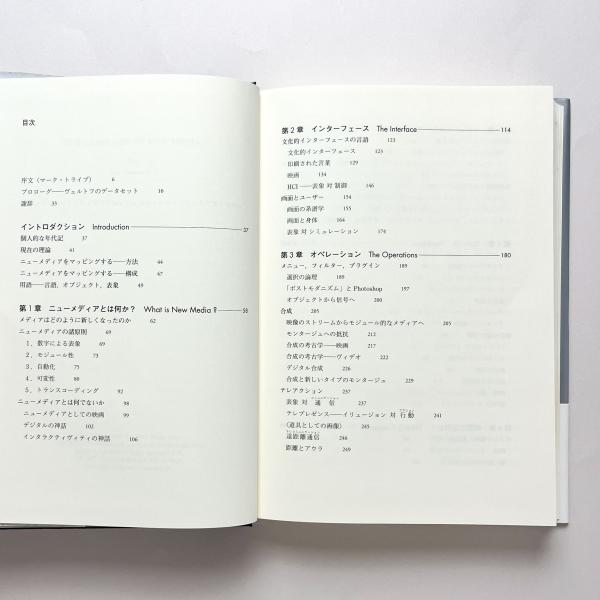 目次
序文(マーク・トライブ) 6
プロローグ——ヴェルトフのデータセット 10
謝辞 33
イントロダクション Introduction 37
個人的な年代記 37
現在の理論 41
ニューメディアをマッピングする——方法 44
ニューメディアをマッピングする——構成 47
用語——言語、オブジェクト、表象 49
第1章 ニューメディアとは何か? What is New Media ? 58
メディアはどのように新しくなったのか 62
ニューメディアの諸原則 69
1、数字による表象 69
2、モジュール性 73
3、自動化 75
4、可変性 80
5、トランスコーディング 92
ニューメディアとは何でないか 98
ニューメディアとしての映画 99
デジタルの神話 102
インタラクティヴィティの神話 106
第2章 インターフェース The Interface 114
文化的インターフェースの言語 123
文化的インターフェース 123
印刷された言葉 129
映画 134
HCI——表象 対 制御 146
画面とユーザー 154
画面の系譜学 155
画面と身体 164
表象 対 シミュレーション 174
第3章 オペレーション The Operations 180
メニュー、フィルター、プラグイン 189
選択の論理 189
「ポストモダニズム」と Photoshop 197
オブジェクトから信号へ 200
合成 205
映像のストリームからモジュール的なメディアへ 205
モンタージュへの抵抗 212
合成の考古学——映画 217
合成の考古学——ヴィデオ 222
デジタル合成 226
合成と新しいタイプのモンタージュ 229
テレアクション 237
表象 対 通信 237
テレプレゼンス——イリュージョン 対 行動 241
〈道具としての画像〉 245
遠距離通信 246
距離とアウラ 249